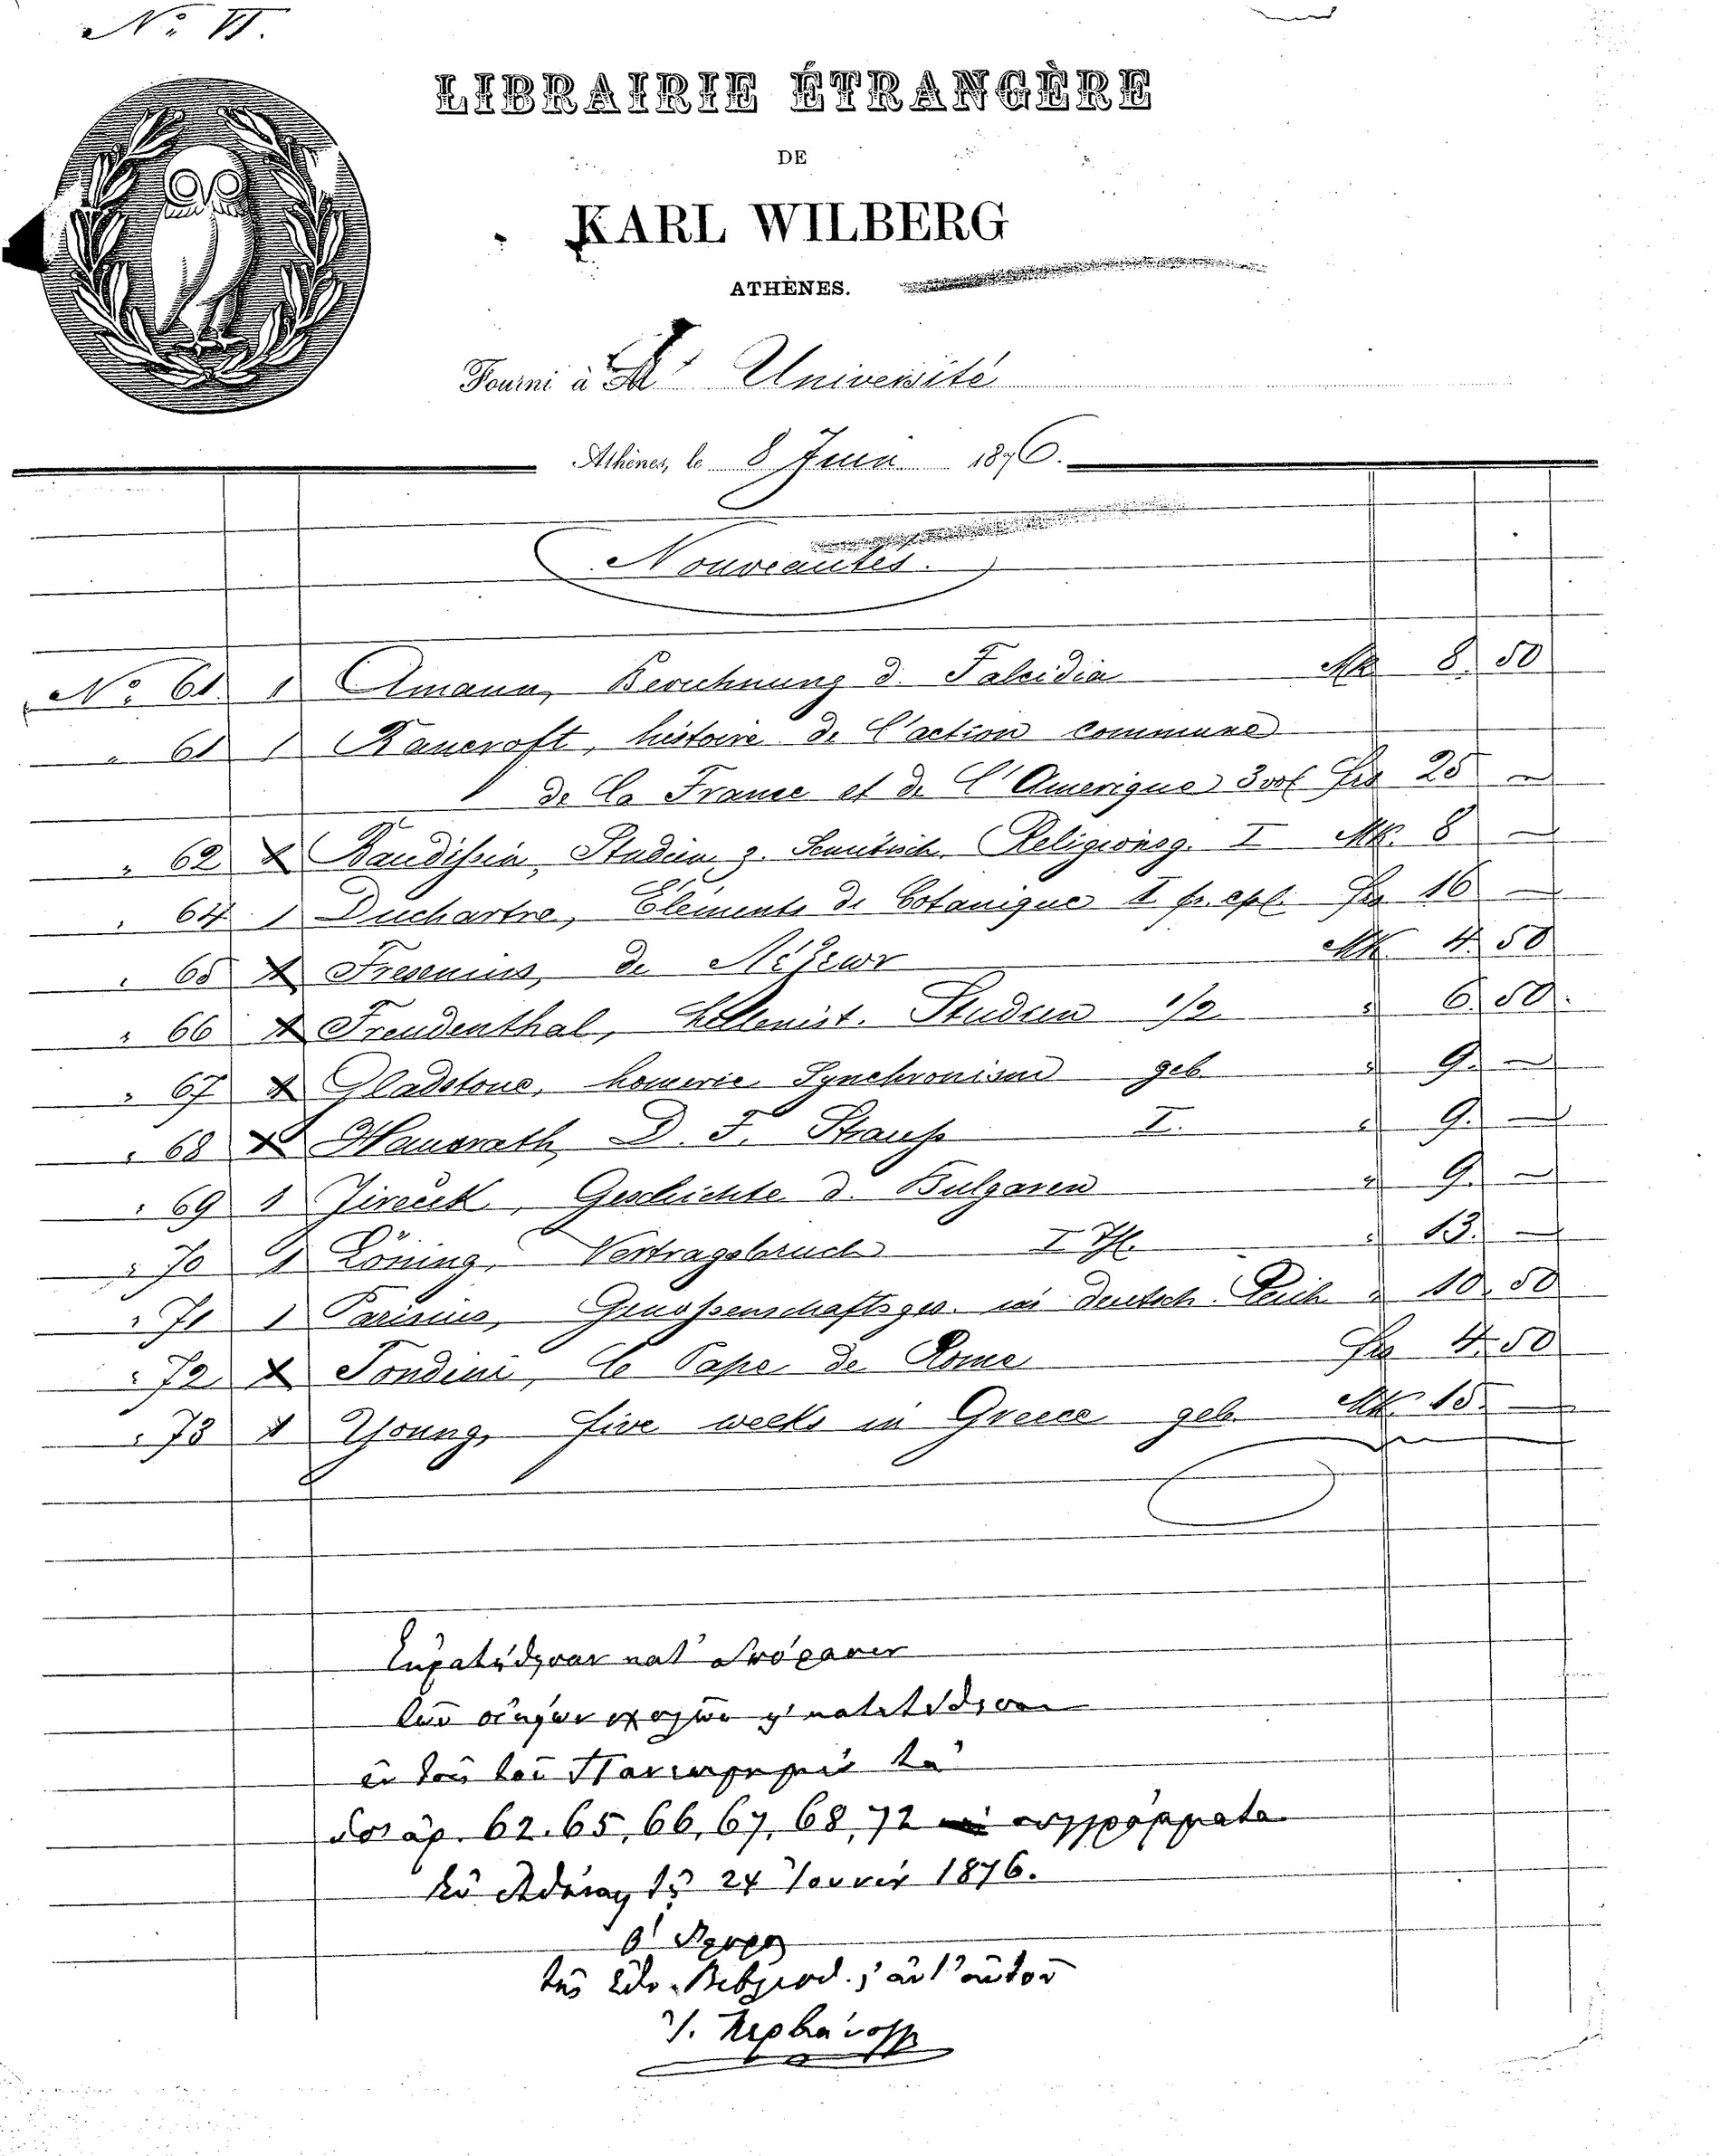 No. VI.
LIBRAIRIE ÉTRANGÈRE
DE
KARL WILBERG
ATHÈNES.
Fourni à l' Université
Athènes, le 8 Juin 1876.
Nouveautés.
No. 61 1 Amann, Berechnung d. Falcidia Mk 8. 50
" 61 1 Bancroft, histoire de l'action commune
de la France et de l'Amerique 3 vol frs 25 —
" 62 1 Baudissin, Studien z. Semitisch. Religionsg. I Mk. 8 —
" 64 1 Duchartre, Eléments de botanique I frs 16 —
" 65 1 Fresenius, de λέξεων Mk. 4. 50
" 66 1 Freudenthal, hellenist. Studien 1/2 " 6. 50.
" 67 1 Gladstone, homeric Synchronism geb " 9. —
" 68 1 Hausrath, D. F. Strauß I. " 9. —
" 69 1 Jireček, Geschichte d. Bulgaren " 9. —
" 70 1 Löning, Vertragsbruch I Thl. " 13. —
" 71 1 Parisius, Genoßenschaftsges. im deutsch. Reich " 10. 50
" 72 1 Tondini, le Pape de Rome frs 4. 50
" 73 1 Young, five weeks in Greece geb. Mk. 15. —
κατ' ἀπόφασιν
τῶν
ἐν τῷ τοῦ Πανεπιστημίου τὰ
ὑπ' ἀρ. 62. 65, 66, 67, 68, 72 συγγράμματα
Ἐν Ἀθήναις τῇ 24 Ἰουνίου 1876.
Ὁ Ἔφορος
τῆς Ἐθν. Βιβλιοθ.